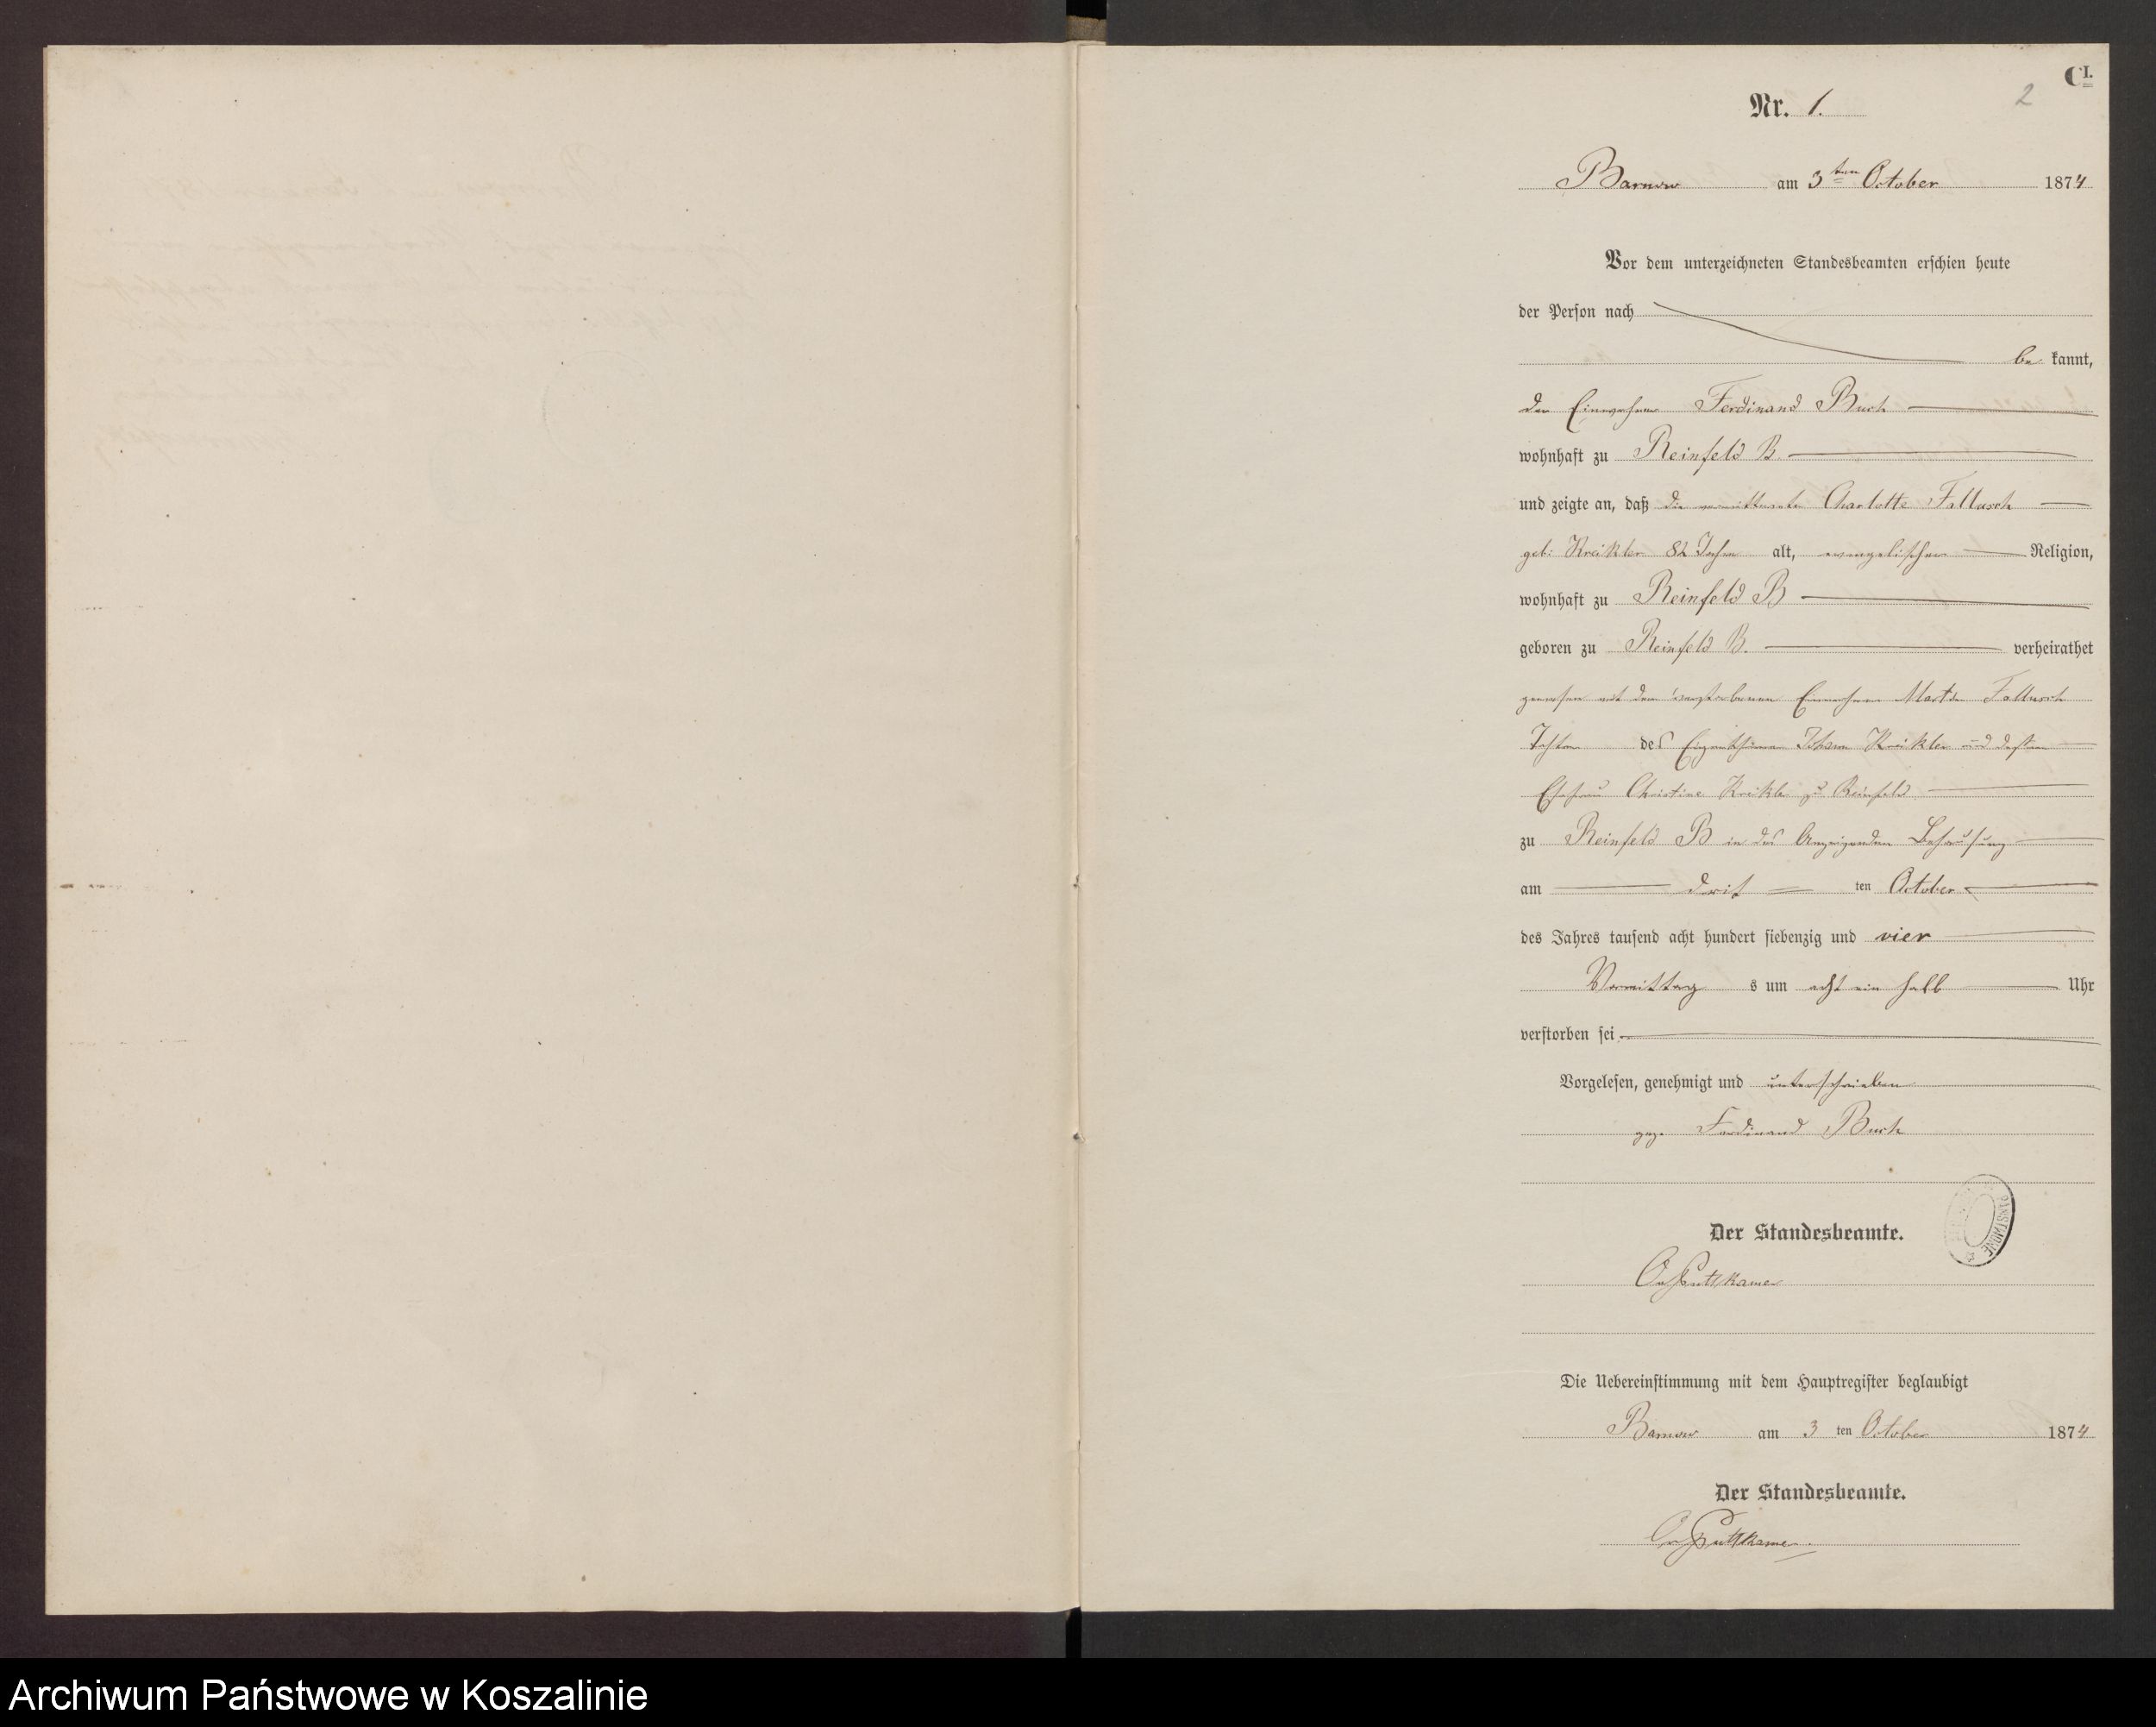 C I.
2
Nr. 1.
Barnow am 3 ten October 1874
Vor dem unterzeichneten Standesbeamten erschien heute
der Person nach
be kannt,
der Einwohner Ferdinand Buch
wohnhaft zu Reinfeld B.
und zeigte an, daß die verwittwete Charlotte
geb: Kreikler 82 Jahre alt, evangelischer Religion,
wohnhaft zu Reinfeld B
geboren zu Reinfeld B. verheirathet
gewesen mit dem verstorbenen Einwohner Martin
Tochter des Eigenthümer Johann Kreikler und dessen
Ehefrau Christine Kreikler zu Reinfeld
zu Reinfeld B in des Anzeigenden Behausung
am drit ten October
des Jahres tausend acht hundert siebenzig und vier
Vormittag s um acht ein halb Uhr
verstorben sei
Vorgelesen, genehmigt und unterschrieben
gez. Ferdinand Buch
PAŃSTWOWE
Der Standesbeamte.
Puttkamer
Die Uebereinstimmung mit dem Hauptregister beglaubigt
Barnow am 3 ten October 1874
Der Standesbeamte.
Puttkamer.
Archiwum Państwowe w Koszalinie